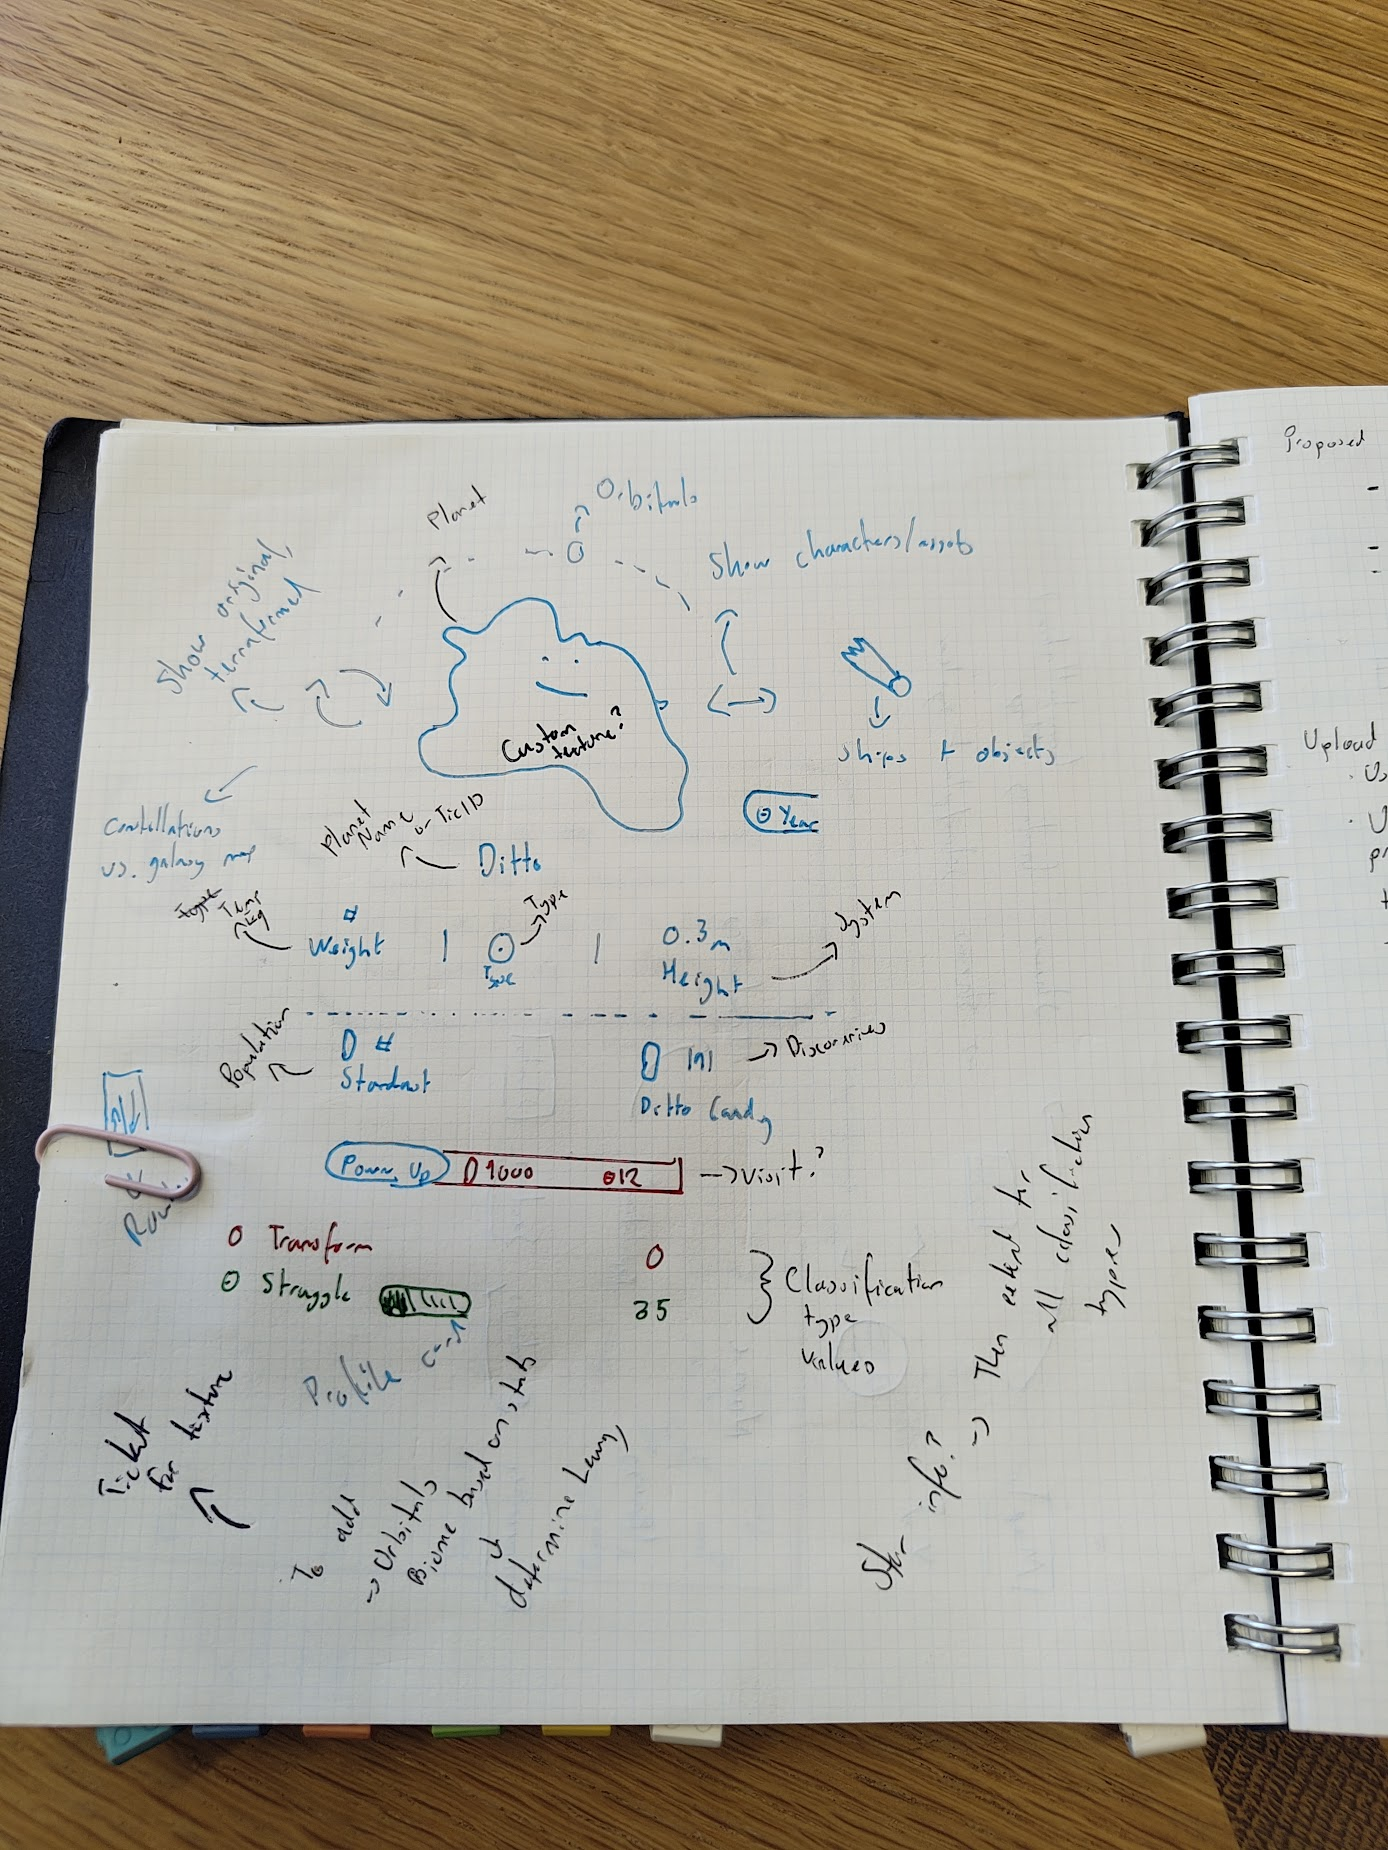 Planet
Orbitals
Show characters/assets
Show original,
terraformed
Custom
texture?
Ships + objects
Constellations
vs. galaxy map
Planet
Name
or TicID
Year
Ditto
Type
Temp
kg
#
Weight
|
Type
Type
|
0.3m
Height
System
Population
#
Stardust
191
Discoveries
Ditto Candy
Power Up
1000
12
Visit?
Transform
0
Struggle
35
Classification
type
values
Profile card
Ticket
for texture
To add
→ Orbitals
Biome based on stats
determine
Star info?
→ Then extent for
all classification
types
Proposed
-
-
-
Upload